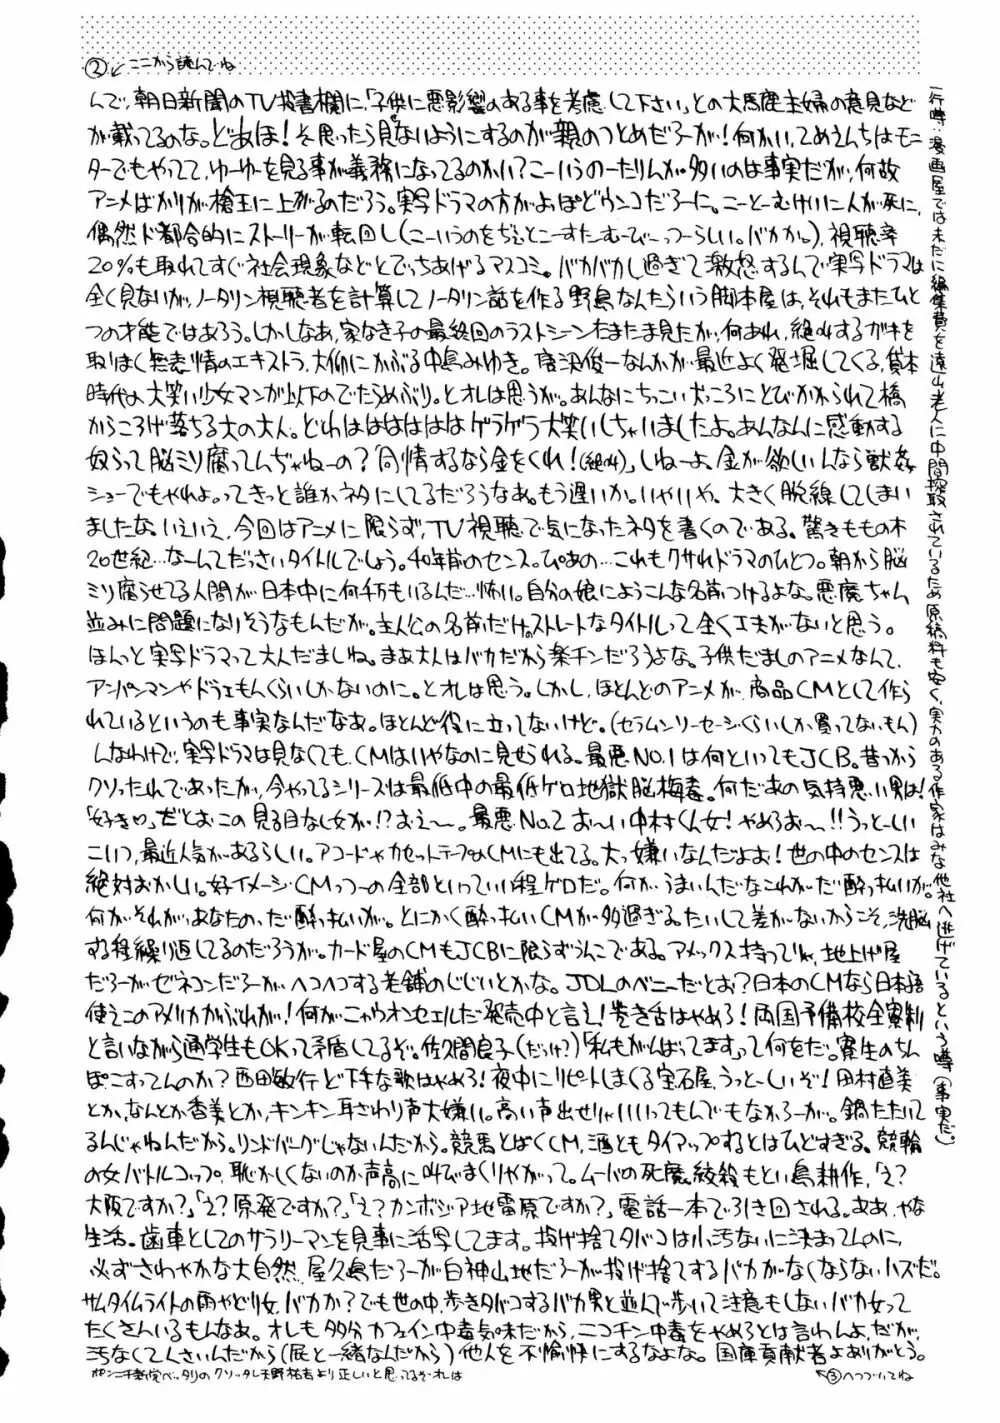 ② ↙ ここから読んでね
んで、朝日新聞のTV投書欄に、「子供に悪影響のある事を考慮して下さい」との大馬鹿主婦の意見など
が載ってるのな。どあほ!そう思ったら見ないようにするのが親のつとめだろーが!何かい、てめえんちはモニ
ターでもやってて、ゆーゆーを見る事が義務になってるのかい?こーいうのーたりんが多いのは事実だが、何故
アニメばかりが槍玉に上がるのだろう。実写ドラマの方がよっぽどウンコだろーに。こーとーむけいに人が死に、
偶然ド都合的にストーリーが転回し(こーいうのをぢぇとこーすたーむーびーっつーらしい。バカか。)、視聴率
20%も取れてすぐ社会現象などとでっちあげるマスコミ。バカバカし過ぎて激怒するんで実写ドラマは
全く見ないが、ノータリン視聴者を計算してノータリン話を作る野島なんたらいう脚本屋は、それもまたひと
つの才能ではあろう。しかしなあ、家なき子の最終回のラストシーンたまたま見たが、何あれ、絶叫するガキを
取りまく無表情のエキストラ、大仰にかぶる中島みゆき。唐沢俊一なんかが最近よく発掘してくる、貸本
時代の大笑い少女マンガ以下のでたらめぶり。とオレは思うが。あんなにちっこい犬っころにとびかかられて橋
からころげ落ちる大の大人。どわはははははゲラゲラ大笑いしちゃいましたよ。あんなんに感動する
奴らって脳ミソ腐ってんぢゃねーの?「同情するなら金をくれ!(絶叫)」しねーよ。金が欲しいんなら獣姦
ショーでもやれよ。ってきっと誰かネタにしてるだろうなあ。もう遅いか。いやいや、大きく脱線してしまい
ましたな。いえいえ、今回はアニメに限らず、TV視聴で気になったネタを書くのである。驚きももの木
20世紀…なーんてださいタイトルでしょう。40年前のセンス。ぴあの…これもクサれドラマのひとつ。朝から脳
ミソ腐らせてる人間が日本中に何千万もいるんだ…怖い。自分の娘にようこんな名前つけるよな。悪魔ちゃん
並みに問題になりそうなもんだが。主人公の名前だけのストレートなタイトルって全く工夫がないと思う。
ほんっと実写ドラマって大人だましね。まあ大人はバカだから楽チンだろうよな。子供だましのアニメなんて、
アンパンマンやドラえもんくらいしかないのに。とオレは思う。しかし、ほとんどのアニメが、商品CMとして作ら
れているというのも事実なんだなあ。ほとんど役に立ってないけど。(セラムンソーセージくらいしか買ってないもん)
しなわけで、実写ドラマは見なくても、CMはいやなのに見せられる。最悪NO.1は何といってもJCB。昔っから
クソったれであったが、今やってるシリーズは最低中の最低ゲロ地獄脳梅毒。何だあの気持悪い男は!
「好き♡」だとおこの見る目なし女が!?おえ〜。最悪No.2 お〜い中村くん女!やめろお〜!!うっとーしい
こいつ、最近人気があるらしい。アコードやカセットテープのCMにも出てる。大っ嫌いなんだよお!世の中のセンスは
絶対おかしい。好イメージCMっつーの全部といっていい程ゲロだ。何が、うまいんだなこれがだ酔っ払いが。
何が、それが、あなたの、だ酔っ払いが。とにかく酔っ払いCMが多過ぎる。たいして差がないからこそ、洗脳
する程繰り返してるのだろうが。カード屋のCMもJCBに限らずうんこである。アメックス持ってりゃ、地上げ屋
だろーがゼネコンだろーがヘコヘコする老舗のじじいとかな。JDLのベニーだとお?日本のCMなら日本語
使えこのアメリカかぶれが!何がニャウオンセェルだ発売中と言え!巻き舌はやめろ!両国予備校全寮制
と言いながら通学生もOKって矛盾してるぞ。佐久間良子(だっけ?)「私もがんばってます」って何をだ。寮生のちん
ぽこすってんのか?西田敏行ど下手な歌はやめろ!夜中にリピートしまくる宝石屋、うっとーしいぞ!田村直美
とか、なんとか香美とか、キンキン耳ざわり声大嫌い。高い声出せりゃいいってもんでもなかろーが。鍋たたいて
るんじゃねんだから。リンドバーグじゃないんだから。競馬とばくCM、酒ともタイアップするとはひどすぎる。競輪
の女バトルコップ。恥かしくないのか声高に叫びまくりやがって。ムードの死魔絞殺もとい島耕作、「え?
大阪ですか?」「え?原発ですか?」「え?カンボジア地雷原ですか?」電話一本で引き回される。ああ、やな
生活。歯車としてのサラリーマンを見事に活写してます。投げ捨てタバコは小汚ないに決まってんのに、
必ずさわやかな大自然、屋久島だろーが白神山地だろーが投げ捨てするバカがなくならないハズだ。
サムタイムライトの雨やどり女、バカか?でも世の中、歩きタバコするバカ男と並んで歩いて注意もしないバカ女って
たくさんいるもんなあ。オレも多分カフェイン中毒気味だから、ニコチン中毒をやめろとは言わんよ。だが、
汚なくてくさいんだから(屁と一緒なんだから)他人を不愉快にするなよな。国庫貢献者よありがとう。
↖③へつづいてね
一行噂:漫画屋では未だに編集費を遠山老人に中間搾取されているため原稿料も安く、実力のある作家はみな他社へ逃げているという噂(事実だ。)